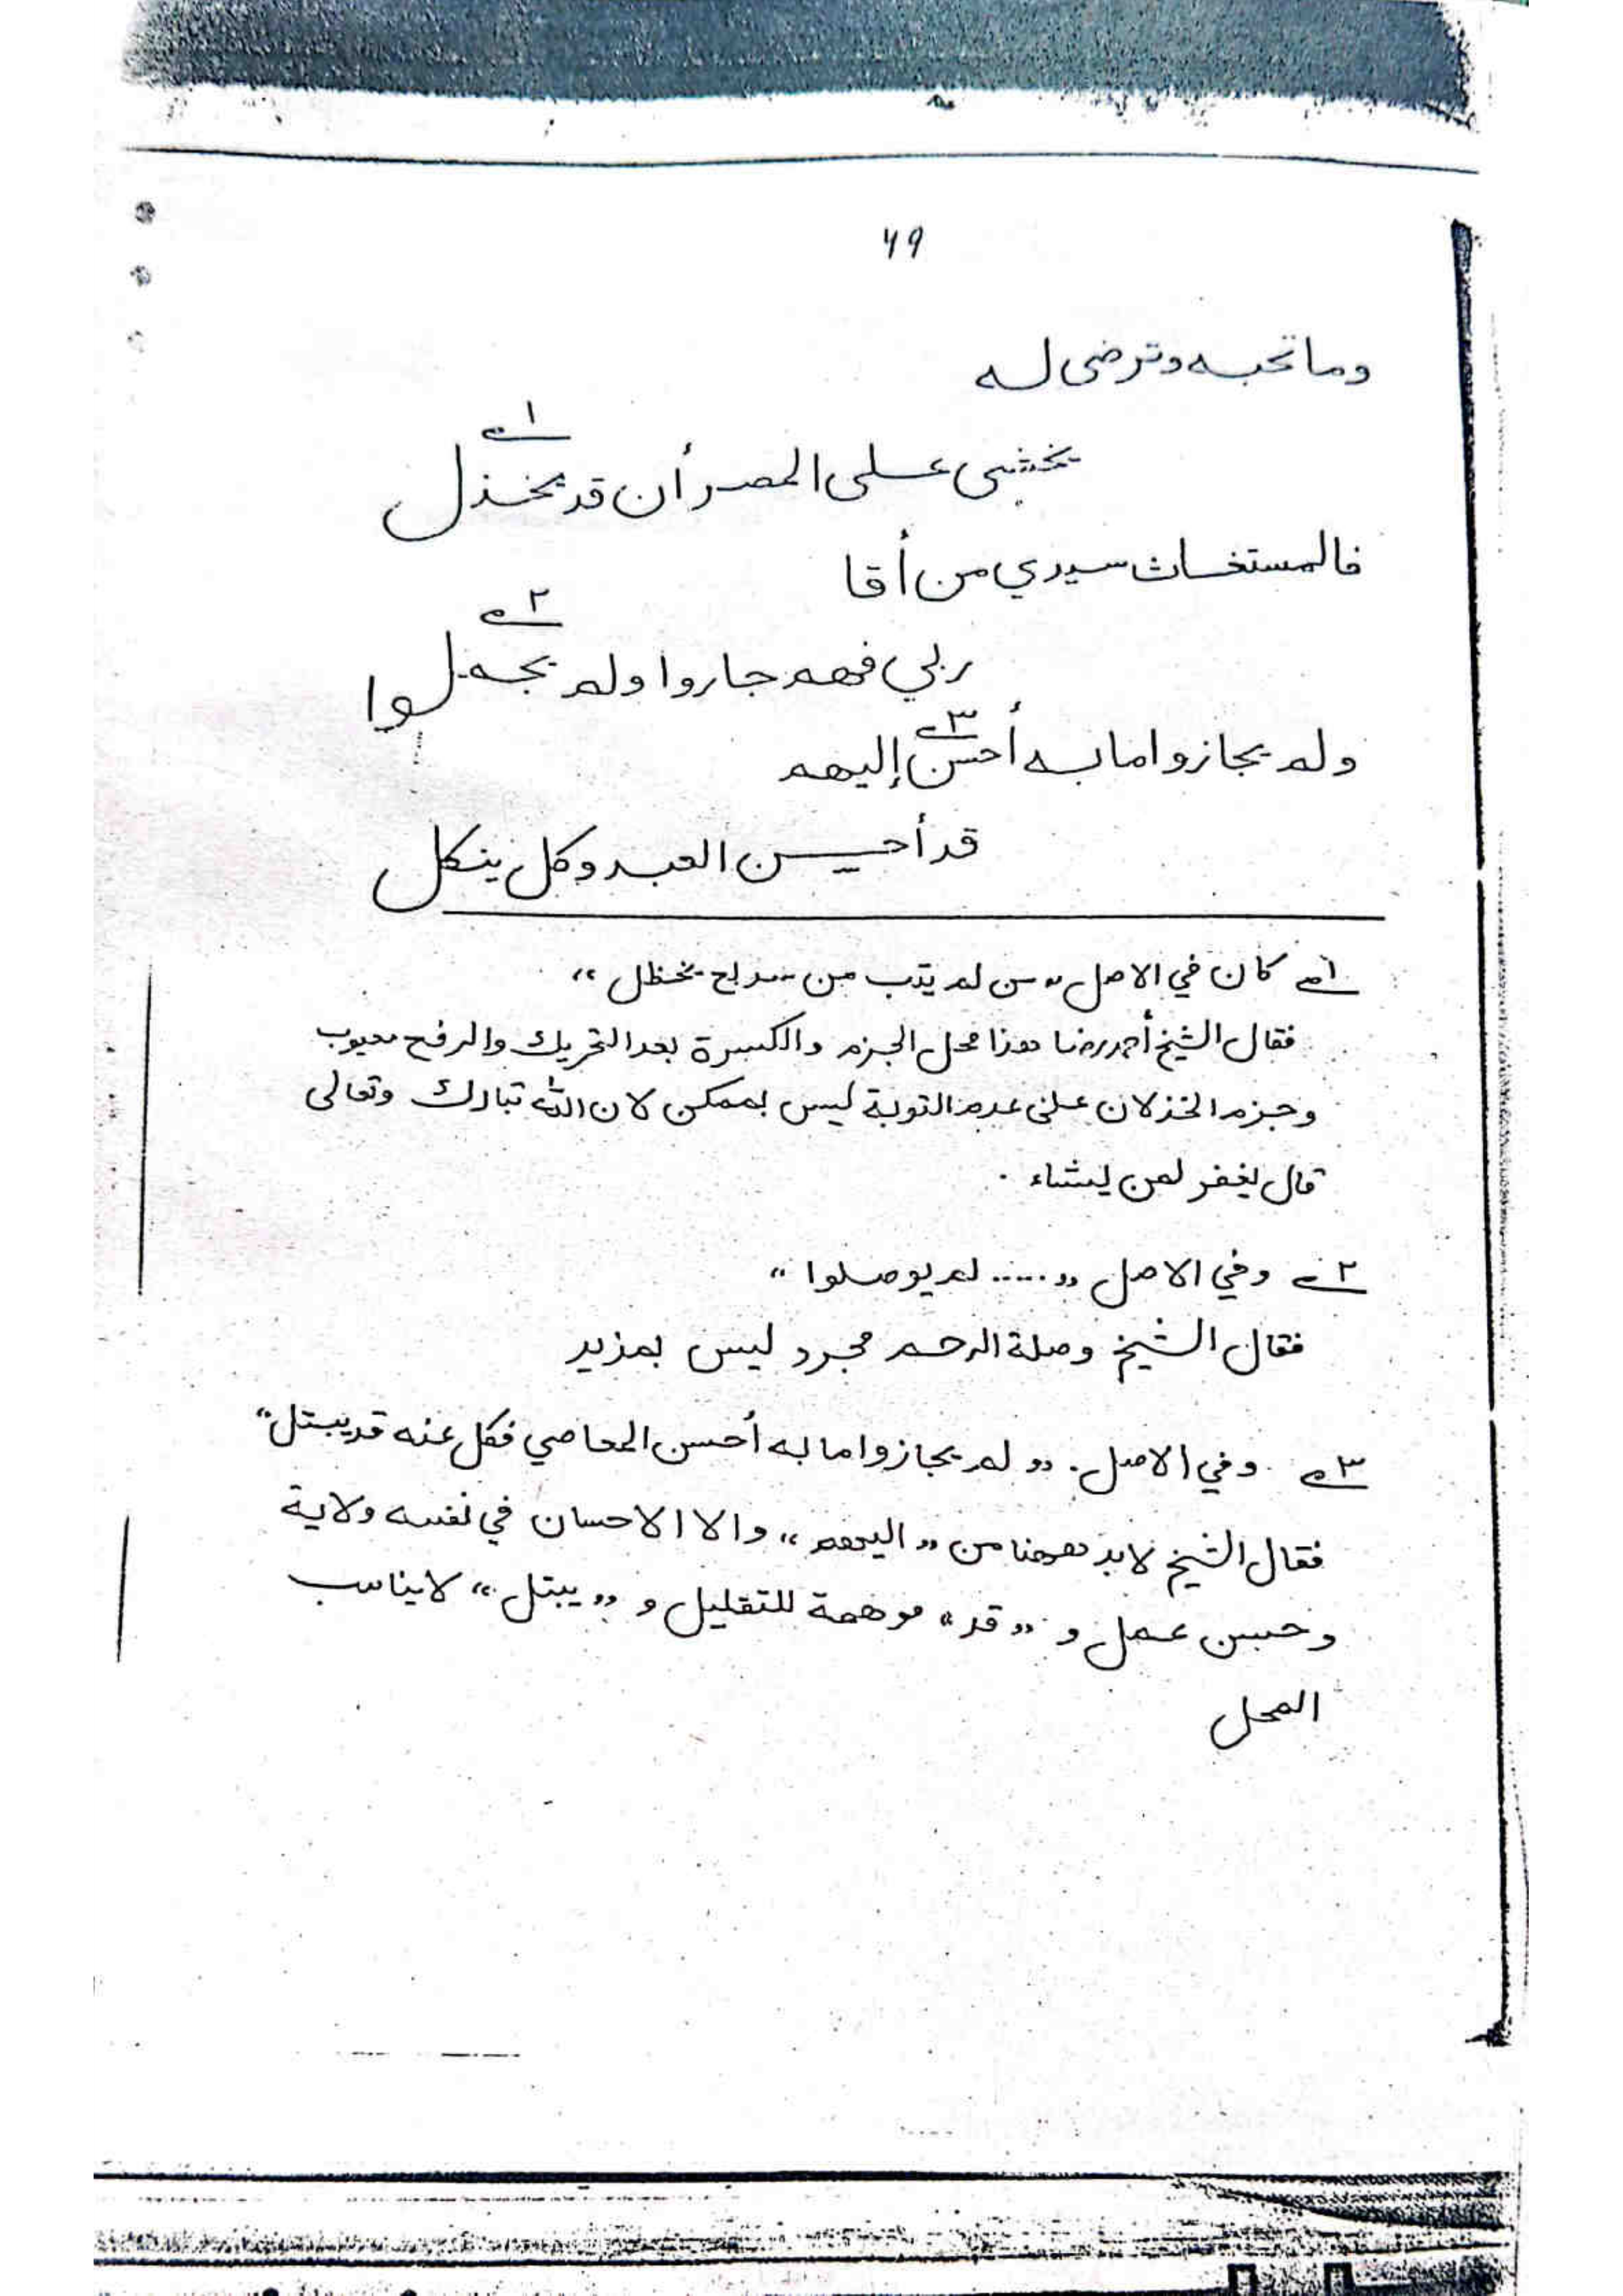 ٦٩
وما تحبه وترضى له
يخشى على المصر أن قد يخذل ١
فالمستغاث سيدي من أقا
ربي فهم جاروا ولم يجهلوا ٢
ولم يجازوا ما به أحسن ٣ إليهم
قد أحسن العبد وكل ينكل
١ كان في الاصل "من لم يتب من يخظل"
فقال الشيخ أحمد رضا هذا محل الجزم والكسرة بعد التحريك والرفع معيوب
وجزم الخذلان على عدم التوبة ليس بممكن لان الله تبارك وتعالى
قال يغفر لمن يشاء .
٢ وفي الاصل "..... لم يوصلوا"
فقال الشيخ وصلة الرحم مجرد ليس بمزيد
٣ وفي الاصل. "ولم يجازوا ما به أحسن المعاصي فكل عنه قد يبتل"
فقال الشيخ لابد ههنا من "اليهم" والا الاحسان في نفسه ولاية
وحسن عمل و "قد" موهمة للتقليل و "يبتل" لا يناسب
المحل